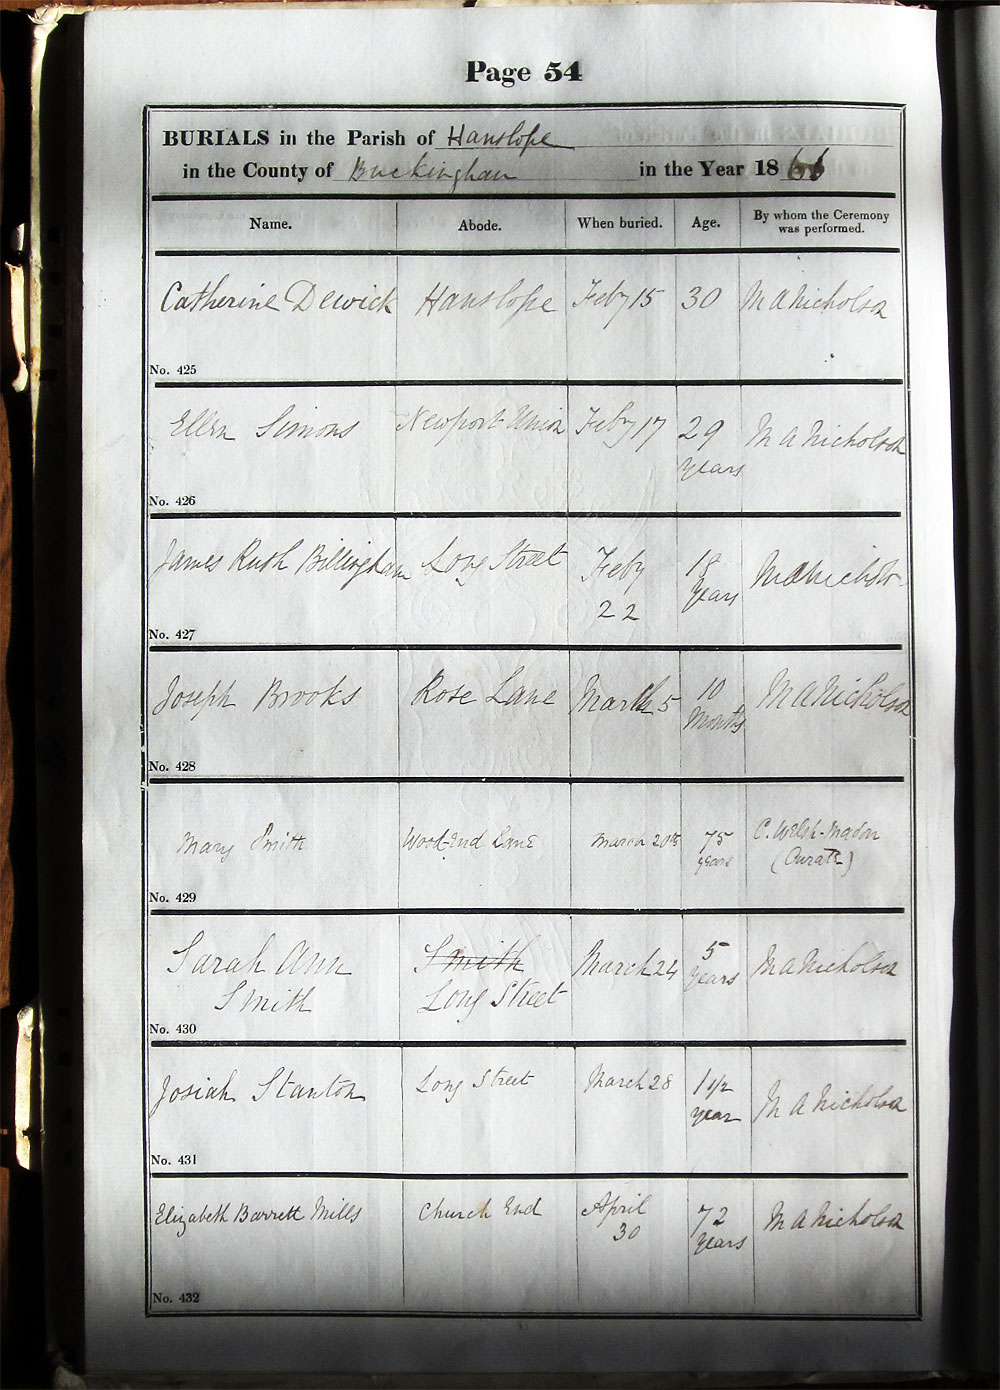 Page 54
BURIALS in the Parish of Hanslope
in the County of Buckingham in the Year 1866
Name. Abode. When buried. Age. By whom the Ceremony was performed.
Catherine Dewick Hanslope Feby 15 30 M A Nicholson
No. 425
Ellen Simons Newport Union Feby 17 29 years M A Nicholson
No. 426
James Rush Billingham Long Street Feby 22 18 years M A Nicholson
No. 427
Joseph Brooks Rose Lane March 5 10 Months M A Nicholson
No. 428
Mary Smith Wood-End Lane March 20th 75 years C. Welsh-Mason (Curate)
No. 429
Sarah Ann Smith March 24 5 years M A Nicholson
Smith Long Street
No. 430
Josiah Stanton Long Street March 28 1 1/2 year M A Nicholson
No. 431
Elizabeth Barrett Mills Church End April 30 72 years M A Nicholson
No. 432